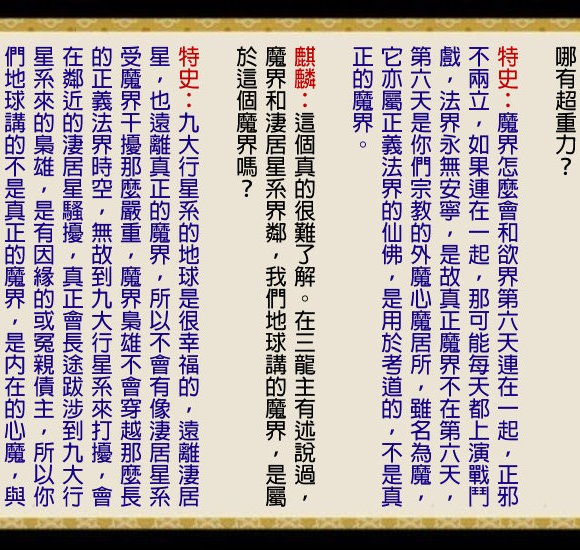 哪有超重力？
特史：魔界怎麼會和欲界第六天連在一起，正邪
不兩立，如果連在一起，那可能每天都上演戰鬥
戲，法界永無安寧，是故真正魔界不在第六天，
第六天是你們宗教的外魔心魔居所，雖名為魔，
它亦屬正義法界的仙佛，是用於考道的，不是真
正的魔界。
麒麟：這個真的很難了解。在三龍主有述說過，
魔界和淒居星系界鄰，我們地球講的魔界，是屬
於這個魔界嗎？
特史：九大行星系的地球是很幸福的，遠離淒居
星，也遠離真正的魔界，所以不會有像淒居星系
受魔界干擾那麼嚴重，魔界梟雄不會穿越那麼長
的正義法界時空，無故到九大行星系來打擾，會
在鄰近的淒居星騷擾，真正會長途跋涉到九大行
星系來的梟雄，是有因緣的或冤親債主，所以你
們地球講的不是真正的魔界，是內在的心魔，與